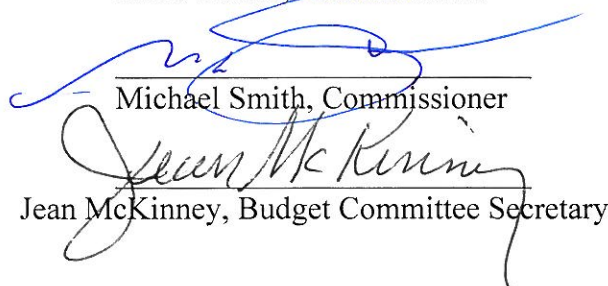 Michael Smith, Commissioner
Jean McKinney
Jean McKinney, Budget Committee Secretary